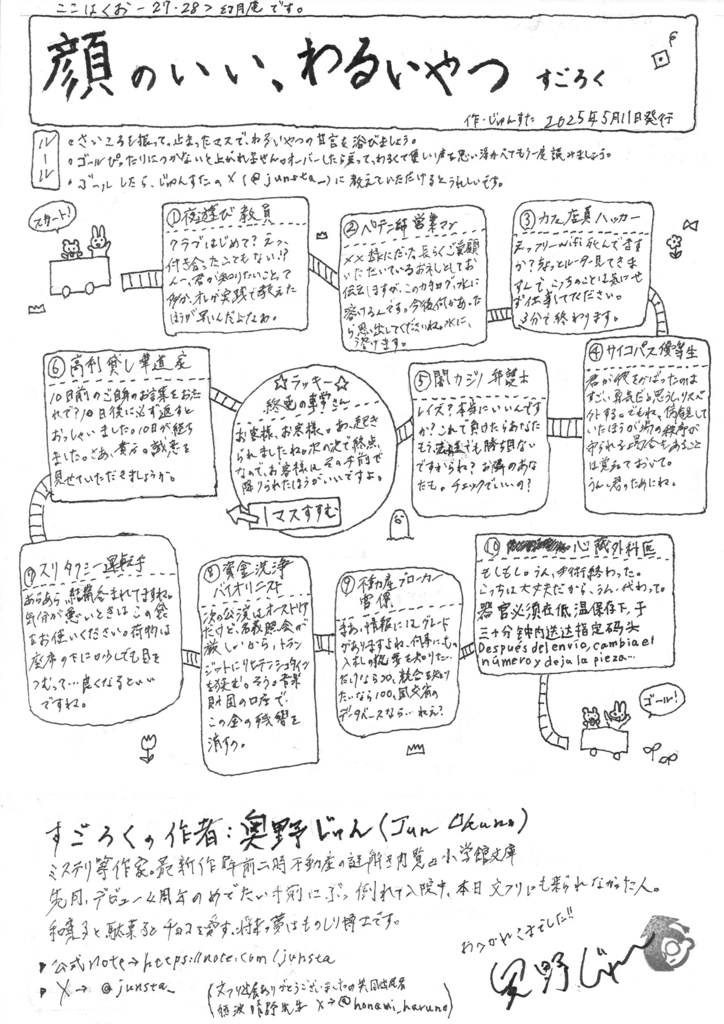 ここはくおー27・28> 幻月庵です。
顔のいい、わるいやつ すごろく
作・じゅんすた 2025年5月11日発行
ルール
・さいころを振って、止まったマスで、わるいやつの甘言を浴びましょう。
・ゴールぴったりにつかないと上がれません。オーバーしたら戻って、わるくて良い声を思い浮かべてもう一度読みましょう。
・ゴールしたら、じゅんすたのX(@junsta_)に教えていただけるとうれしいです。
スタート!
①夜遊び教員
クラブはじめて?えっ、
付き合ったこともない!?
んー、君が知りたいことって
多分、オレが実践で教えた
ほうが早いんだよなぁ。
②ペテン師営業マン
××様にだけ、長らくご愛顧
いただいているお礼としてお
伝えしますが、このカタログ、水に
溶けるんです。今後何かあった
ら思い出してくださいね。水に、
溶けます。
③カフェ店員ハッカー
えっフリーWifi死んでます
か?ちょっとルーター見てきま
すんで、こっちのことは気にせ
ずお仕事してください。
3分で終わります。
④サイコパス優等生
君が彼をかばったのは
すごい勇気だと思うし、リスペ
クトする。でもね、傍観して
いたほうが場の秩序が
守られる場合もあること
は覚えておいて。
うん、君のためにね。
⑤闇カジノ弁護士
レイズ?本当にいいんです
か?これで負けたらあなた
もう法廷でも勝ち目ない
ですからね?お隣のあな
たも。チェックでいいの?
☆ラッキー☆
終電の車掌さん
お客様、お客様。あ、起き
られましたね。次の次で終点
なので、お客様はその手前で
降りられたほうがいいですよ。
1マスすすむ
⑥高利貸し華道家
10日前のご自身のお言葉をお忘
れで?10日後に必ず返すと
おっしゃいました。10日が経ち
ました。さあ、貴方の誠意を
見せていただきましょうか。
⑦スリタクシー運転手
あらあら、結構酔われてますね。
気分が悪いときはこの袋
をお使いください。荷物は
座席の下に。少しでも目を
つむって…良くなるといい
ですね。
⑧資金洗浄
バイオリニスト
次の公演はオーストリア
だけど、名義照会が
厳しいから、トラン
ジットにリヒテンシュタイン
を挟む。そう。音楽
財団の口座で、
この金の残響を
消すの。
⑨不動産ブローカー
官僚
まあ、情報にはグレード
がありますよね、何事にも。
入札の概要を知りたい
だけなら20、競合を知り
たいなら100、国交省の
データベースなら…ねえ?
⑩ 心臓外科医
もしもし。うん、手術終わった。
こっちは大丈夫だから、うん、代わって。
器官必须在低温保存下,于
三十分钟内送达指定码头
Después del envío, cambia el
número y deja la pieza...
ゴール!
すごろくの作者:奥野じゅん(Jun Okuno)
ミステリ等作家。最新作 午前二時不動産の謎解き内覧 @小学館文庫
先月、デビュー4周年のめでたい寸前にぶっ倒れて入院中、本日文フリにも来られなかった人。
和菓子と駄菓子とチョコを愛す、将来の夢はものしり博士です。
▶公式note→https://note.com/junsta
▶X→@junsta_
(文フリ出展ありがとうございましたの共同出店者
穂波晴野先生 X→@honami_haruno)
おつかれさまでした!!
奥野じゅん